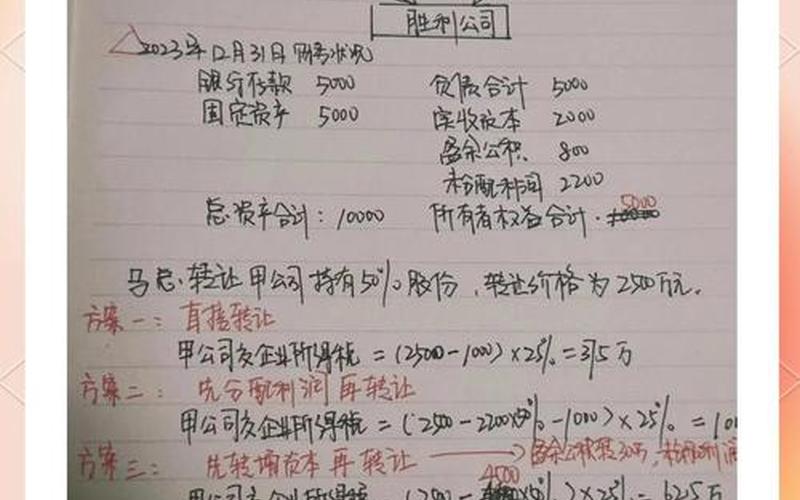 胜利公司
2023年12月31日 财务状况
银行存款 5000 负债合计 5000
固定资产 5000 实收资本 2000
盈余公积 800
未分配利润 2200
总资产合计: 10000 所有者权益合计. 5000
马总:转让甲公司持有50%股份,转让价格为2500万元.
方案一: 直接转让
甲公司交企业所得税 = (2500-1000)×25% = 375万
方案二: 先分配利润再转让
甲公司交企业所得税 = (2500-2200×50%-1000)×25% = 100
方案三: 先转增资本再转让 → 盈余公积转300万,未分配利润
甲公司交企业所得税 (2500 - 4500 ×50%)×25% = 62.5万